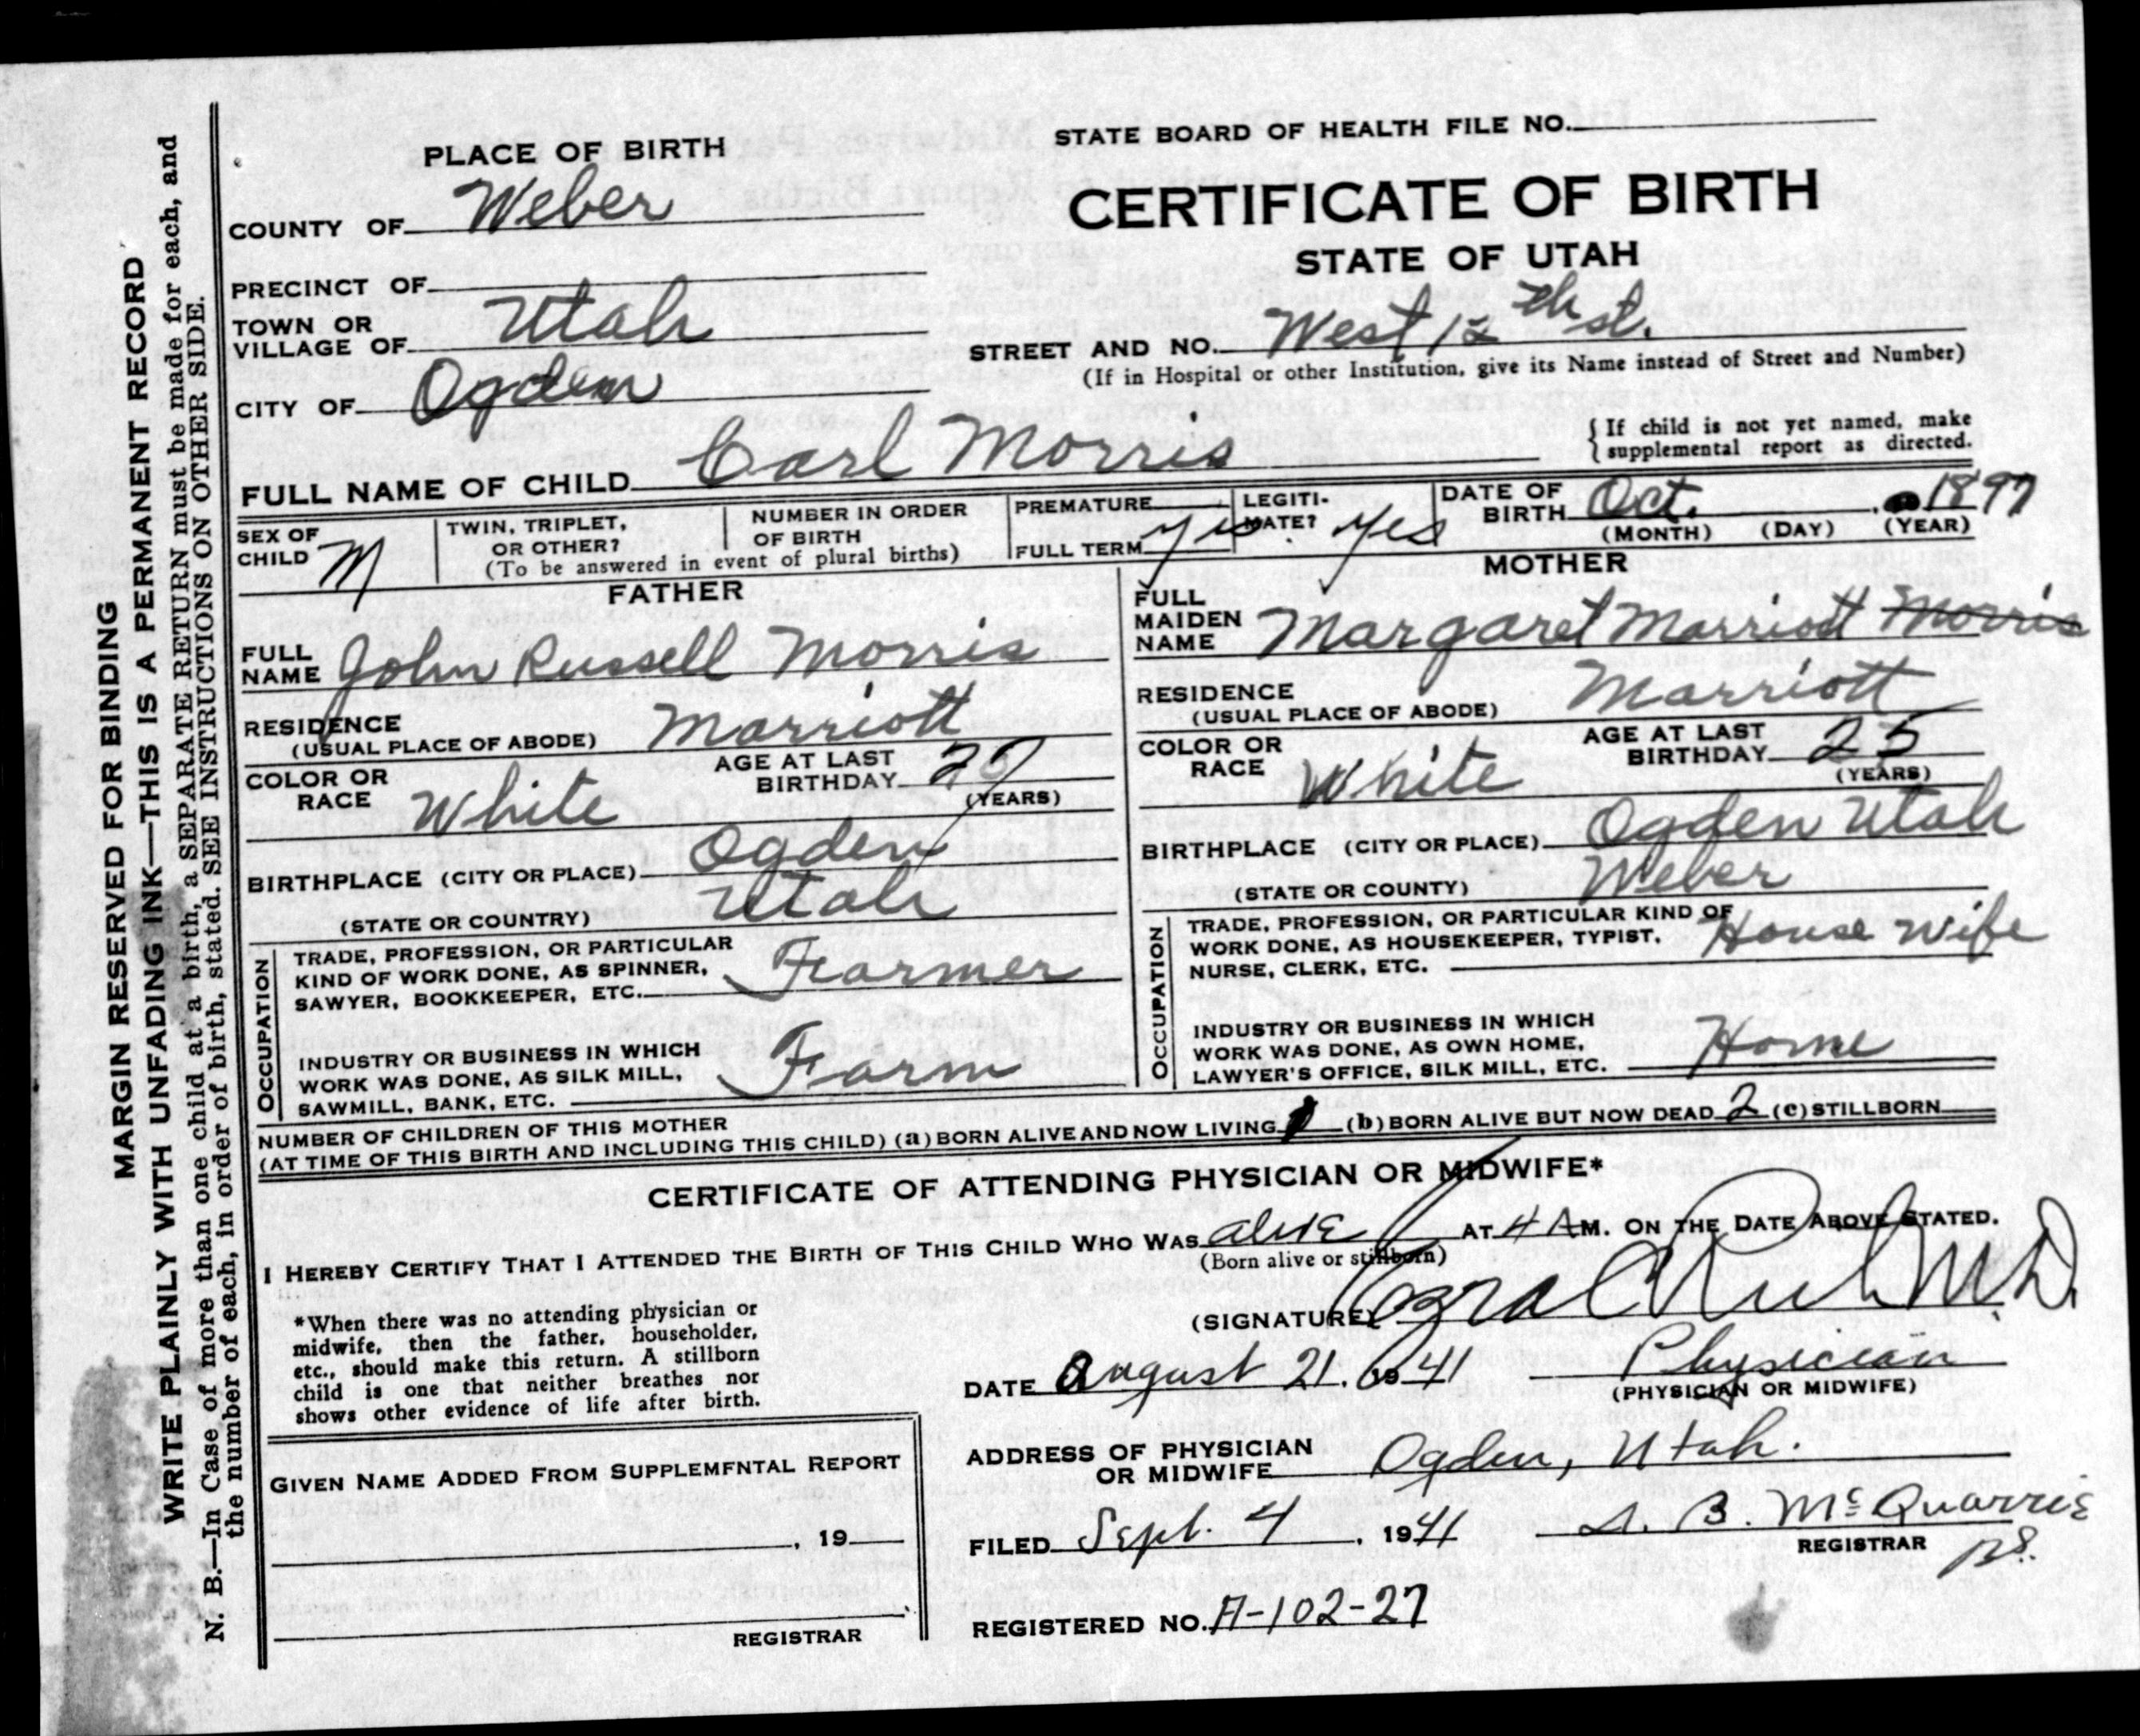 MARGIN RESERVED FOR BINDING
WRITE PLAINLY WITH UNFADING INK—THIS IS A PERMANENT RECORD
N. B.—In Case of more than one child at a birth, a SEPARATE RETURN must be made for each, and
the number of each, in order of birth, stated. SEE INSTRUCTIONS ON OTHER SIDE.
PLACE OF BIRTH
COUNTY OF Weber
PRECINCT OF
TOWN OR
VILLAGE OF Utah
CITY OF Ogden
STATE BOARD OF HEALTH FILE NO.
CERTIFICATE OF BIRTH
STATE OF UTAH
STREET AND NO. West 12th st.
(If in Hospital or other Institution, give its Name instead of Street and Number)
FULL NAME OF CHILD Carl Morris
{If child is not yet named, make
supplemental report as directed.
SEX OF
CHILD M
TWIN, TRIPLET,
OR OTHER?
NUMBER IN ORDER
OF BIRTH
(To be answered in event of plural births)
PREMATURE
FULL TERM yes
LEGITI-
MATE? Yes
DATE OF
BIRTH Oct. 1897
(MONTH) (DAY) (YEAR)
FATHER
FULL
NAME John Russell Morris
RESIDENCE
(USUAL PLACE OF ABODE) Marriott
COLOR OR
RACE White
AGE AT LAST
BIRTHDAY
(YEARS)
BIRTHPLACE (CITY OR PLACE) Ogden
(STATE OR COUNTRY) Utah
OCCUPATION
TRADE, PROFESSION, OR PARTICULAR
KIND OF WORK DONE, AS SPINNER,
SAWYER, BOOKKEEPER, ETC. Farmer
INDUSTRY OR BUSINESS IN WHICH
WORK WAS DONE, AS SILK MILL,
SAWMILL, BANK, ETC. Farm
MOTHER
FULL
MAIDEN
NAME Margaret Marriott Morris
RESIDENCE
(USUAL PLACE OF ABODE) Marriott
COLOR OR
RACE White
AGE AT LAST
BIRTHDAY 25
(YEARS)
BIRTHPLACE (CITY OR PLACE) Ogden Utah
(STATE OR COUNTY) Weber
OCCUPATION
TRADE, PROFESSION, OR PARTICULAR KIND OF
WORK DONE, AS HOUSEKEEPER, TYPIST,
NURSE, CLERK, ETC. House Wife
INDUSTRY OR BUSINESS IN WHICH
WORK WAS DONE, AS OWN HOME,
LAWYER'S OFFICE, SILK MILL, ETC. Home
NUMBER OF CHILDREN OF THIS MOTHER
(AT TIME OF THIS BIRTH AND INCLUDING THIS CHILD) (a) BORN ALIVE AND NOW LIVING (b) BORN ALIVE BUT NOW DEAD 2 (c) STILLBORN
CERTIFICATE OF ATTENDING PHYSICIAN OR MIDWIFE*
I HEREBY CERTIFY THAT I ATTENDED THE BIRTH OF THIS CHILD WHO WAS alive AT 4 A M. ON THE DATE ABOVE STATED.
(Born alive or stillborn)
*When there was no attending physician or
midwife, then the father, householder,
etc., should make this return. A stillborn
child is one that neither breathes nor
shows other evidence of life after birth.
(SIGNATURE) Ezra C Rich M.D.
DATE August 21. 1941 Physician
(PHYSICIAN OR MIDWIFE)
ADDRESS OF PHYSICIAN
OR MIDWIFE Ogden, Utah.
FILED Sept. 4, 1941 A. B. McQuarrie
REGISTRAR
REGISTERED NO. A-102-27
GIVEN NAME ADDED FROM SUPPLEMFNTAL REPORT
, 19
REGISTRAR